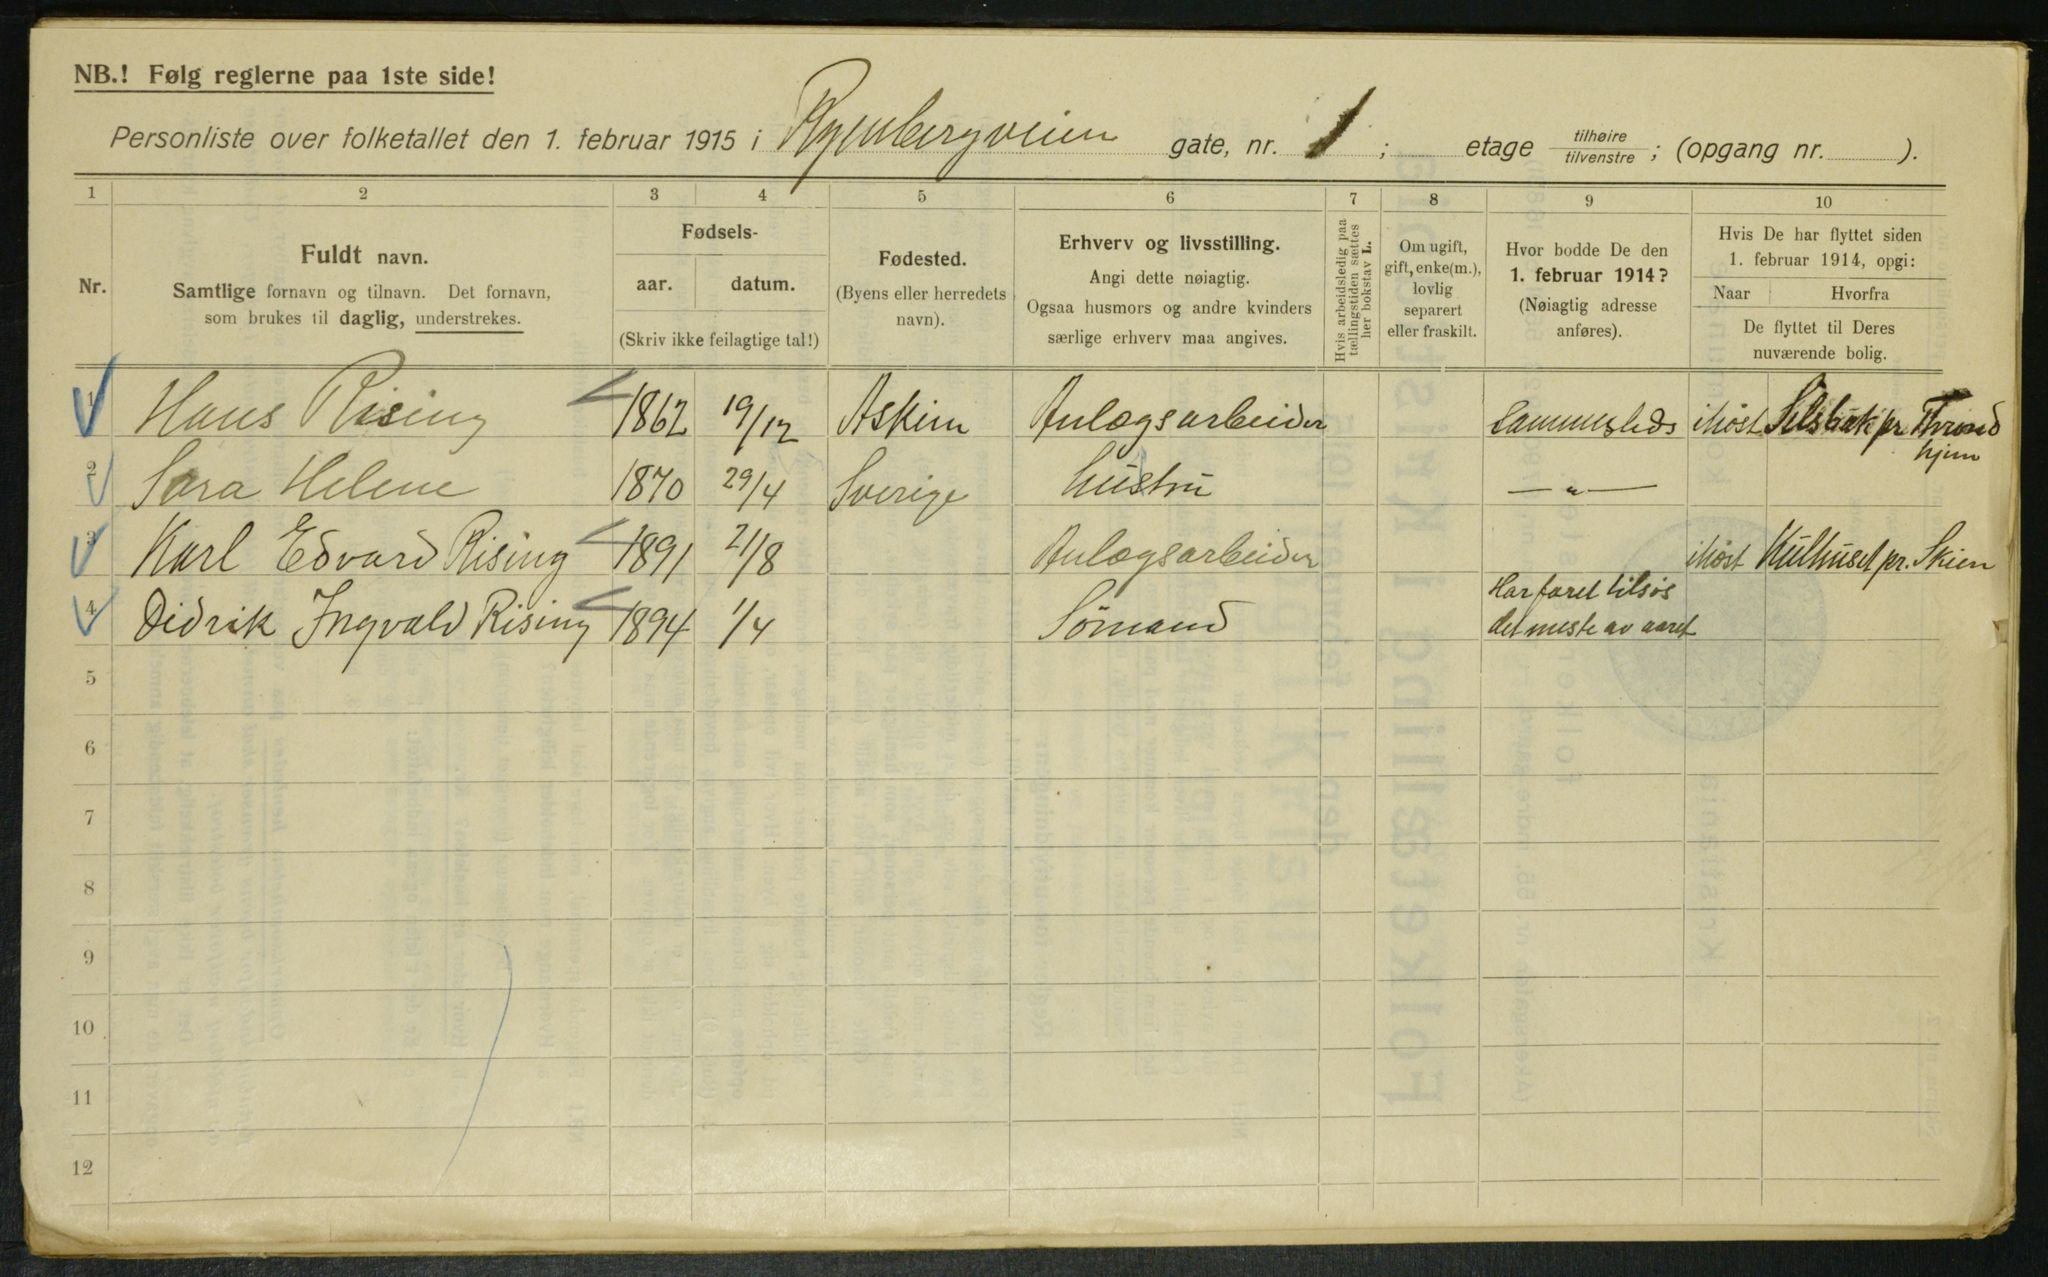 NB.! Følg reglerne paa 1ste side!
Personliste over folketallet den 1. februar 1915 i Ryenbergveien gate, nr. 1 ; etage tilhøire / tilvenstre ; (opgang nr. ).
1 2 3 4 5 6 7 8 9 10
Nr.
Fuldt navn.
Samtlige fornavn og tilnavn. Det fornavn,
som brukes til daglig, understrekes.
Fødsels-
aar. datum.
(Skriv ikke feilagtige tal!)
Fødested.
(Byens eller herredets
navn).
Erhverv og livsstilling.
Angi dette nøiagtig.
Ogsaa husmors og andre kvinders
særlige erhverv maa angives.
Hvis arbeidsledig paa
tællingstiden sættes
her bokstav L.
Om ugift,
gift, enke(m.),
lovlig
separert
eller fraskilt.
Hvor bodde De den
1. februar 1914?
(Nøiagtig adresse
anføres).
Hvis De har flyttet siden
1. februar 1914, opgi:
Naar Hvorfra
De flyttet til Deres
nuværende bolig.
1 Hans Rising 1862 19/12 Askim Anlægsarbeider Sammesteds ihøst Selsbak pr Thrond
hjem
2 Sara Helene 1870 29/4 Sverige hustru — " —
3 Karl Edvard Rising 1891 21/8 Anlægsarbeider ihøst pr. Skien
4 Didrik Ingvald Rising 1894 1/4 Sømand Har faret tilsøs
det meste av aaret
5
6
7
8
9
10
11
12